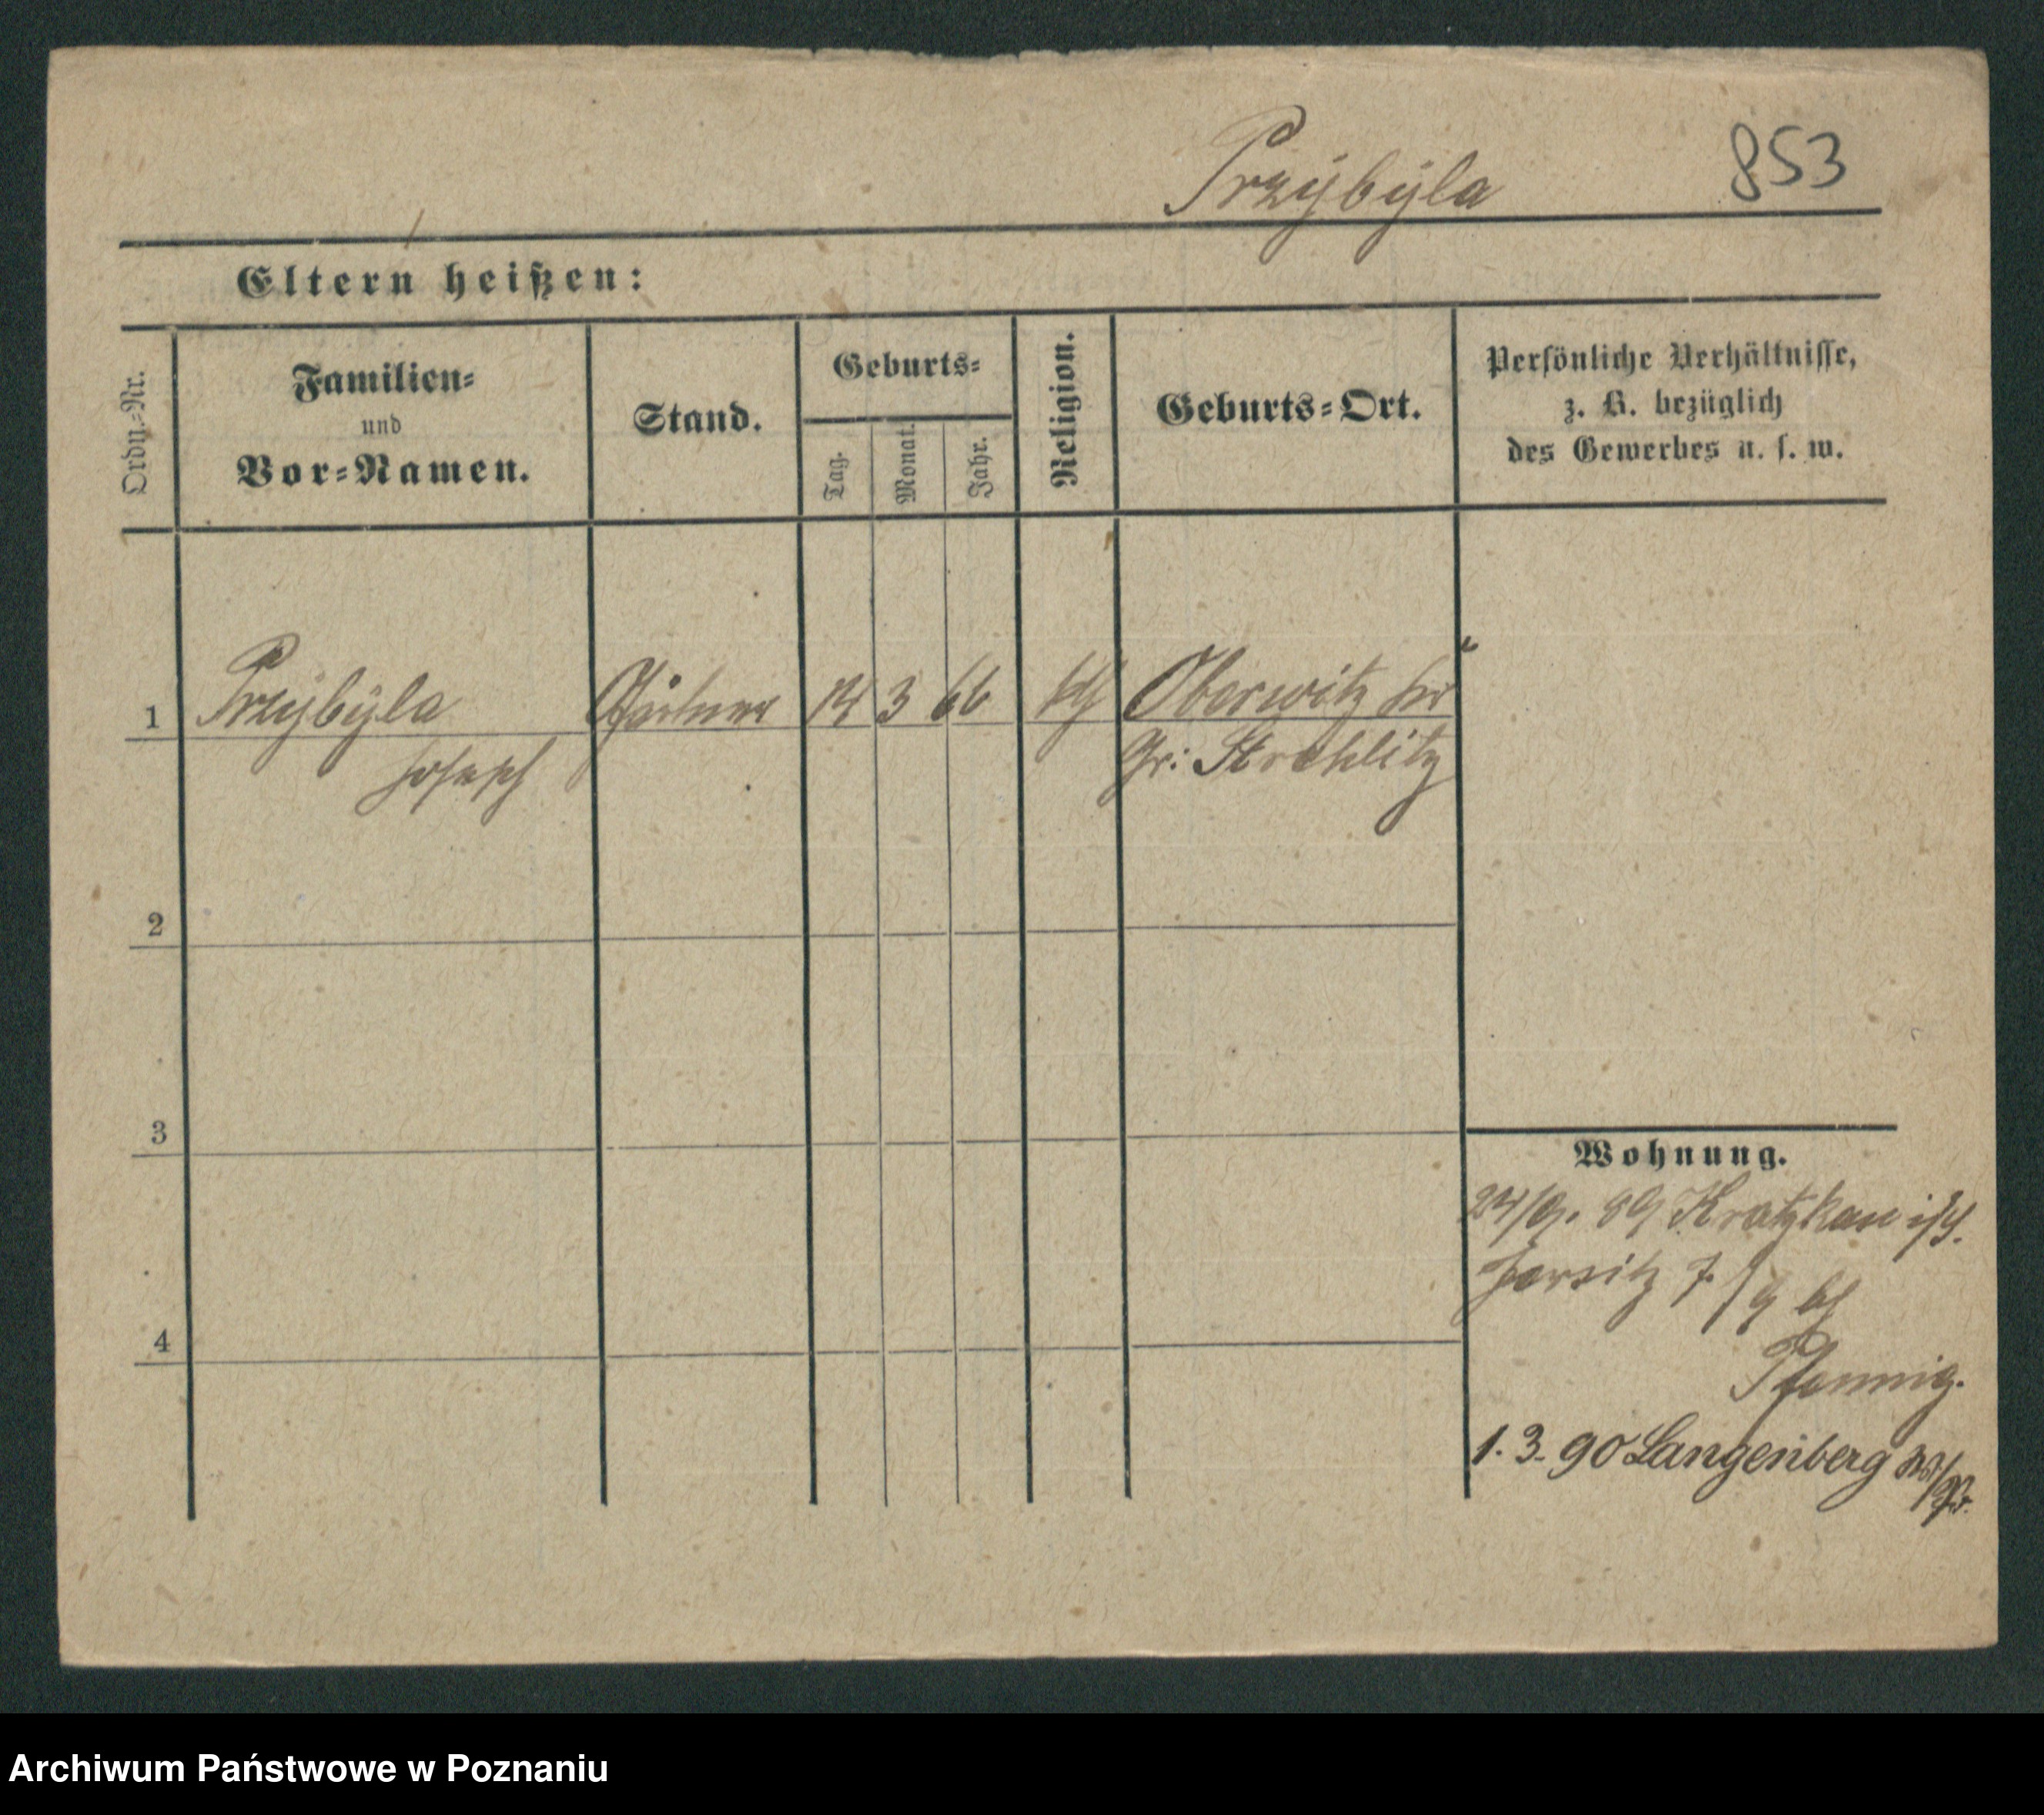 Przybyla 853
Eltern heißen:
Ordn.-Nr.
Familien-
und
Vor-Namen.
Stand.
Geburts-
Tag.
Monat.
Jahr.
Religion.
Geburts-Ort.
Persönliche Verhältnisse,
z. B. bezüglich
des Gewerbes u. s. w.
1 Przybyla Gärtner 14 3 66 kth Oberwitz Kr
Joseph Gr: Strehlitz
2
3
4
Wohnung.
24/9. 89 Kratzkau i/S.
Jersitz 7. / 9 bei
Pfennig.
1. 3. 90 Langenberg
Archiwum Państwowe w Poznaniu